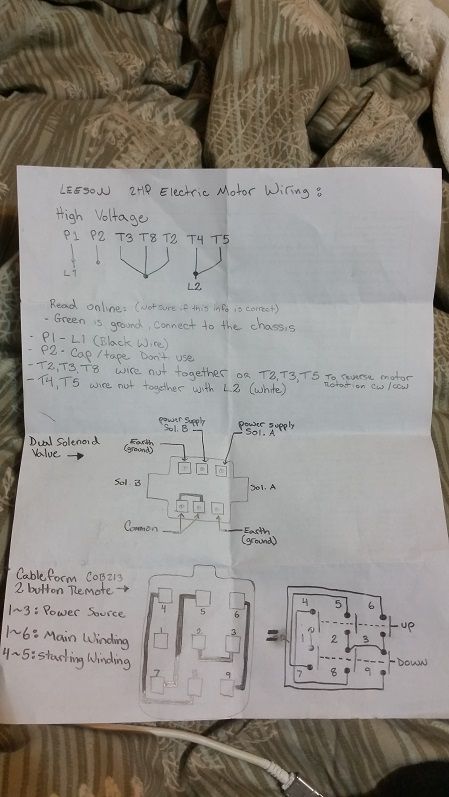 LEESON 2HP Electric Motor Wiring:
High Voltage
P1 P2 T3 T8 T2 T4 T5
L1
L2
Read online: (Not sure if this info is correct)
- Green is ground, connect to the chassis
- P1 - L1 (Black Wire)
- P2 - Cap/tape Don't use
- T2, T3, T8 wire nut together or T2, T3, T5 To reverse motor
Rotation CW/CCW
- T4, T5 wire nut together with L2 (white)
Dual Solenoid
Valve →
Earth
(ground)
power supply
Sol. B
power supply
Sol. A
Sol. B
Sol. A
Common
Earth
(ground)
Cableform COB213
2 button Remote →
1~3: Power Source
1~6: Main Winding
4~5: starting Winding
4 5 6
1 2 3
7 8 9
=
4 5 6
UP
1 2 3
DOWN
7 8 9